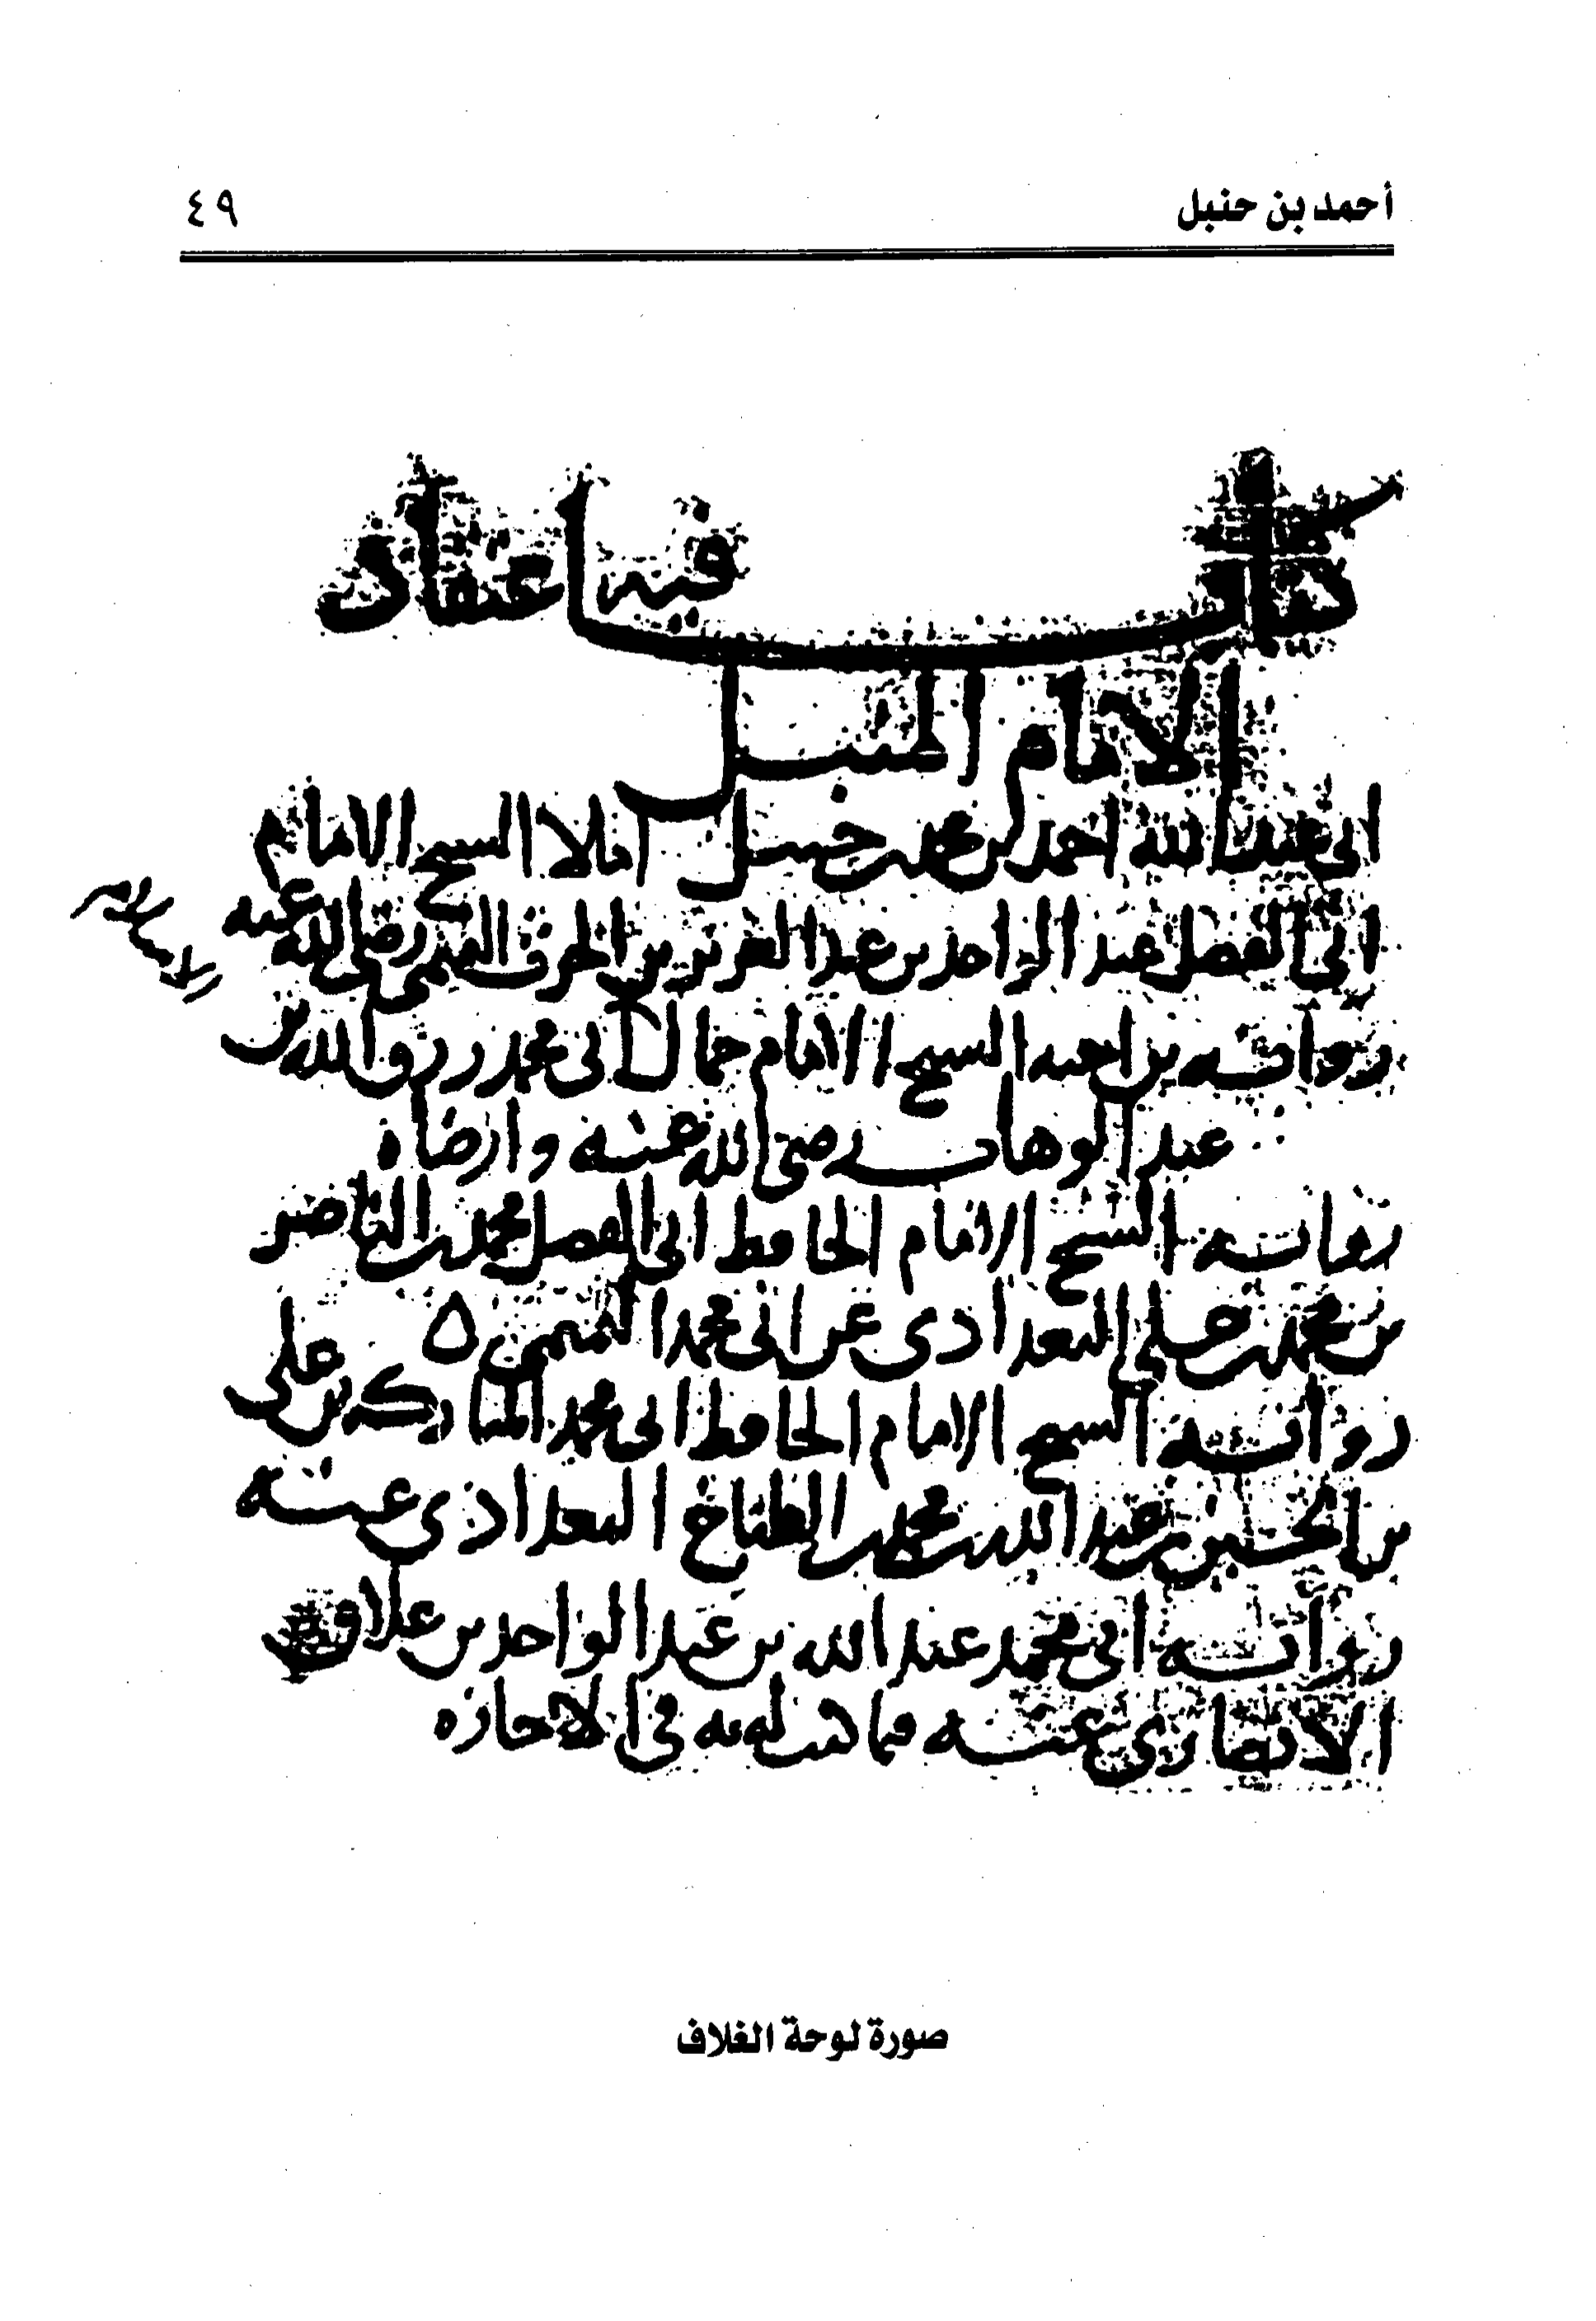 أحمد بن حنبل
٤٩
كتاب فيه اعتقاد
الامام المنبل
ابي عبد الله احمد بن محمد بن حنبل املا الشيخ الامام
ابي الفضل عبد الواحد بن عبد العزيز بن الحرث التميمي رضي الله عنه
رواية بن اخيه الشيخ الامام جمال ابي محمد رزق الله بن
عبد الوهاب رضي الله عنه وارضاه
رواية الشيخ الامام الحافظ ابي الفضل محمد بن الناصر
بن محمد بن علي البغدادي عن ابي محمد التميمي ٥
رواية الشيخ الامام الحافظ ابي محمد المبارك بن علي
بن الحسين بن عبد الله بن محمد الطباخ البغدادي عنه
رواية ابي محمد عبد الله بن عبد الواحد بن علاق
الانصاري عنه فيما كتب له به في الاجازه
صورة لوحة الغلاف